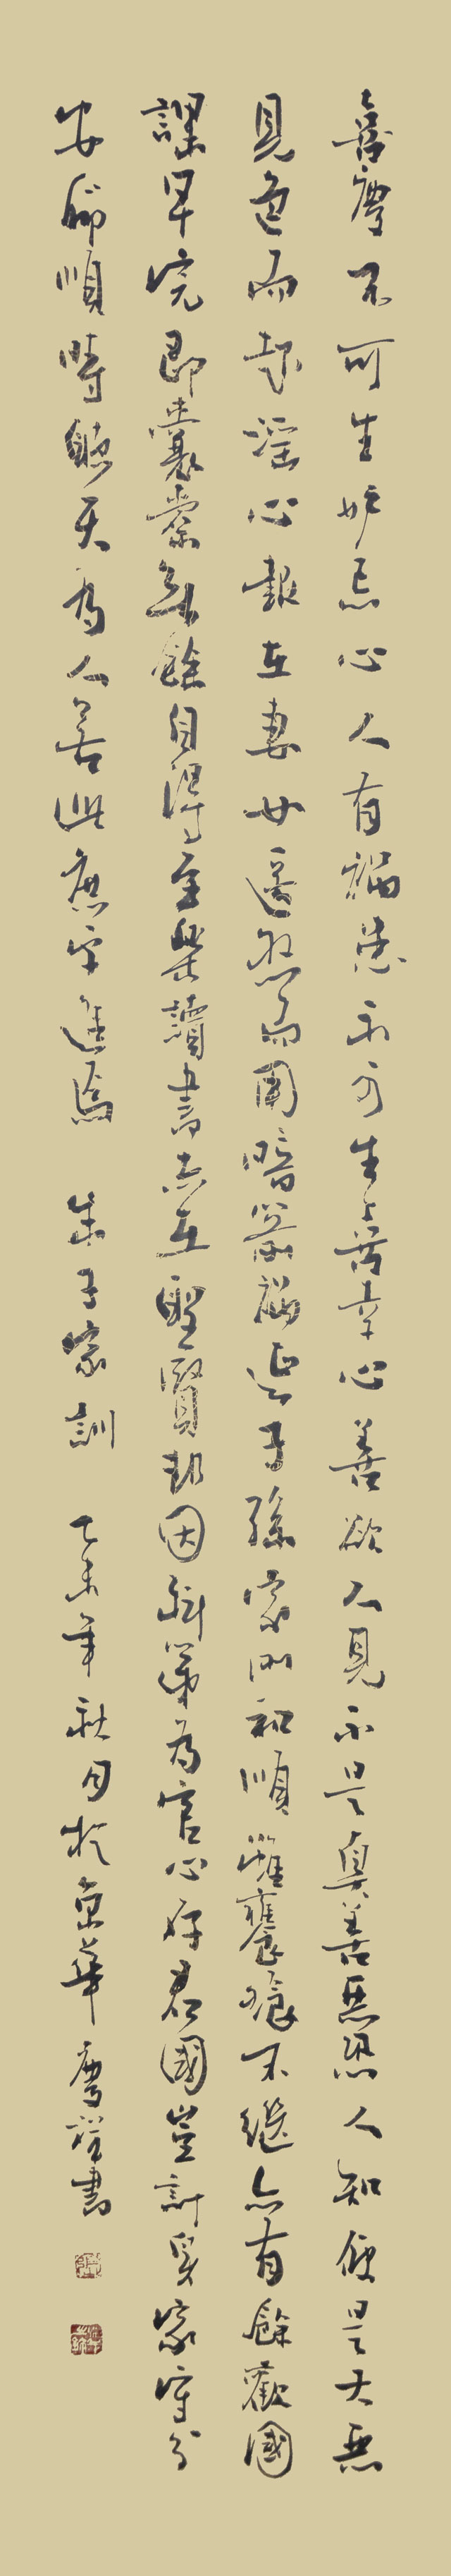 喜慶不可生妒忌心人有禍患不可生喜幸心善欲人見不是真善惡恐人知便是大惡
見色而起淫心報在妻女匿怨而用暗箭禍延子孫家門和順雖饔飧不繼亦有餘歡國
課早完即囊橐無餘自得至樂讀書志在聖賢非因科第為官心存君國豈計身家守分
安命順時聽天為人若此庶乎進焉 朱子家訓 乙未年秋月於京華 慶書